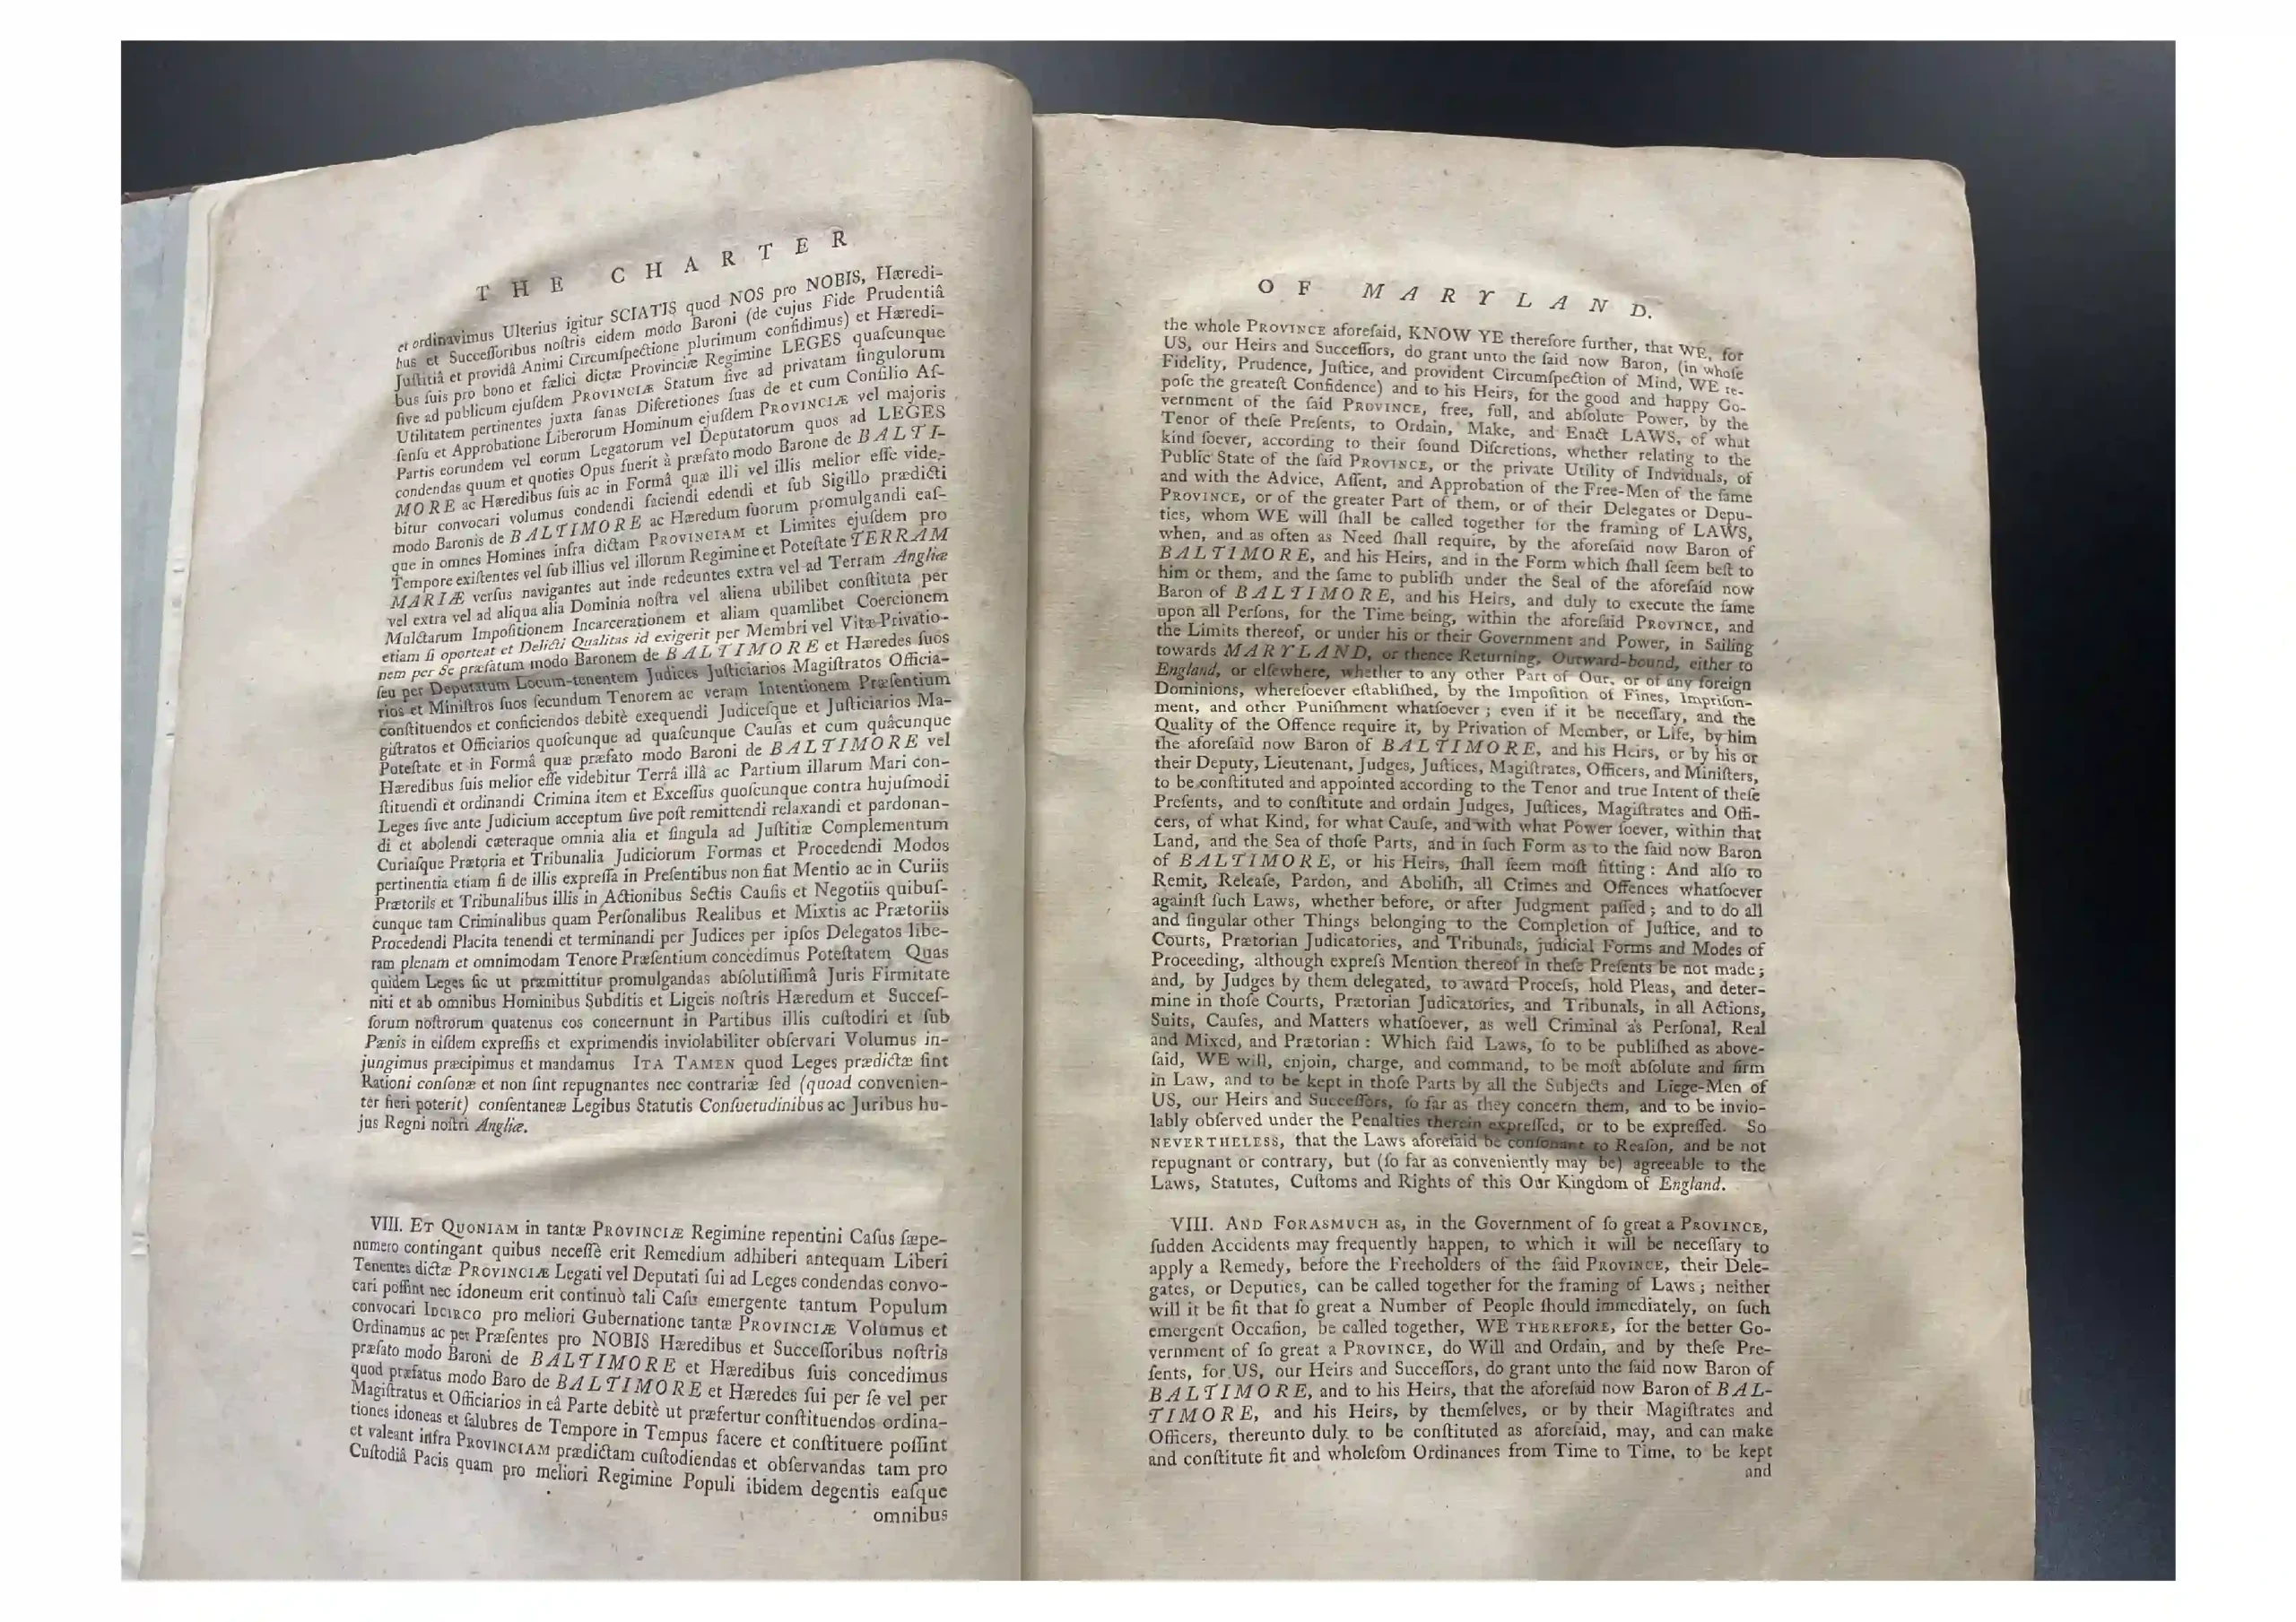 THE CHARTER
et ordinavimus Ulterius igitur SCIATIS quod NOS pro NOBIS, Hæredi-
bus et Succeſſoribus noſtris eidem modo Baroni (de cujus Fide Prudentiâ
Juſtitiâ et providâ Animi Circumſpectione plurimum confidimus) et Hæredi-
bus ſuis pro bono et fælici dictæ Provinciæ Regimine LEGES quaſcunque
ſive ad publicum ejuſdem PROVINCIÆ Statum ſive ad privatam ſingulorum
Utilitatem pertinentes juxta ſanas Diſcretiones ſuas de et cum Conſilio Aſ-
ſenſu et Approbatione Liberorum Hominum ejuſdem PROVINCIÆ vel majoris
Partis eorundem vel eorum Legatorum vel Deputatorum quos ad LEGES
condendas quum et quoties Opus fuerit à præfato modo Barone de BALTI-
MORE ac Hæredibus ſuis ac in Formâ quæ illi vel illis melior eſſe vide-
bitur convocari volumus condendi faciendi edendi et ſub Sigillo prædicti
modo Baronis de BALTIMORE ac Hæredum ſuorum promulgandi eaſ-
que in omnes Homines infra dictam PROVINCIAM et Limites ejuſdem pro
Tempore exiſtentes vel ſub illius vel illorum Regimine et Poteſtate TERRAM
MARIÆ verſus navigantes aut inde redeuntes extra vel ad Terram Angliæ
vel extra vel ad aliqua alia Dominia noſtra vel aliena ubilibet conſtituta per
Mulctarum Impoſitionem Incarcerationem et aliam quamlibet Coercionem
etiam ſi oporteat et Delicti Qualitas id exigerit per Membri vel Vitæ Privatio-
nem per Se præfatum modo Baronem de BALTIMORE et Hæredes ſuos
ſeu per Deputatum Locum-tenentem Judices Juſticiarios Magiſtratos Officia-
rios et Miniſtros ſuos ſecundum Tenorem ac veram Intentionem Præſentium
conſtituendos et conficiendos debitè exequendi Judiceſque et Juſticiarios Ma-
giſtratos et Officiarios quoſcunque ad quaſcunque Cauſas et cum quâcunque
Poteſtate et in Formâ quæ præfato modo Baroni de BALTIMORE vel
Hæredibus ſuis melior eſſe videbitur Terrâ illâ ac Partium illarum Mari con-
ſtituendi et ordinandi Crimina item et Exceſſus quoſcunque contra hujuſmodi
Leges ſive ante Judicium acceptum ſive poſt remittendi relaxandi et pardonan-
di et abolendi cæteraque omnia alia et ſingula ad Juſtitiæ Complementum
Curiaſque Prætoria et Tribunalia Judiciorum Formas et Procedendi Modos
pertinentia etiam ſi de illis expreſſa in Preſentibus non fiat Mentio ac in Curiis
Prætoriis et Tribunalibus illis in Actionibus Sectis Cauſis et Negotiis quibuſ-
cunque tam Criminalibus quam Perſonalibus Realibus et Mixtis ac Prætoriis
Procedendi Placita tenendi et terminandi per Judices per ipſos Delegatos libe-
ram plenam et omnimodam Tenore Præſentium concedimus Poteſtatem Quas
quidem Leges ſic ut præmittitur promulgandas abſolutiſſimâ Juris Firmitate
niti et ab omnibus Hominibus Subditis et Ligeis noſtris Hæredum et Succeſ-
ſorum noſtrorum quatenus eos concernunt in Partibus illis cuſtodiri et ſub
Pænis in eiſdem expreſſis et exprimendis inviolabiliter obſervari Volumus in-
jungimus præcipimus et mandamus ITA TAMEN quod Leges prædictæ ſint
Rationi conſonæ et non ſint repugnantes nec contrariæ ſed (quoad convenien-
ter fieri poterit) conſentaneæ Legibus Statutis Conſuetudinibus ac Juribus hu-
jus Regni noſtri Angliæ.
VIII. ET QUONIAM in tantæ PROVINCIÆ Regimine repentini Caſus ſæpe-
numero contingant quibus neceſſè erit Remedium adhiberi antequam Liberi
Tenentes dictæ PROVINCIÆ Legati vel Deputati ſui ad Leges condendas convo-
cari poſſint nec idoneum erit continuò tali Caſu emergente tantum Populum
convocari IDCIRCO pro meliori Gubernatione tantæ PROVINCIÆ Volumus et
Ordinamus ac per Præſentes pro NOBIS Hæredibus et Succeſſoribus noſtris
præfato modo Baroni de BALTIMORE et Hæredibus ſuis concedimus
quod præfatus modo Baro de BALTIMORE et Hæredes ſui per ſe vel per
Magiſtratus et Officiarios in eâ Parte debitè ut præfertur conſtituendos ordina-
tiones idoneas et ſalubres de Tempore in Tempus facere et conſtituere poſſint
et valeant infra PROVINCIAM prædictam cuſtodiendas et obſervandas tam pro
Cuſtodiâ Pacis quam pro meliori Regimine Populi ibidem degentis eaſque
omnibus
OF MARYLAND.
the whole PROVINCE aforeſaid, KNOW YE therefore further, that WE, for
US, our Heirs and Succeſſors, do grant unto the ſaid now Baron, (in whoſe
Fidelity, Prudence, Juſtice, and provident Circumſpection of Mind, WE re-
poſe the greateſt Confidence) and to his Heirs, for the good and happy Go-
vernment of the ſaid PROVINCE, free, full, and abſolute Power, by the
Tenor of theſe Preſents, to Ordain, Make, and Enact LAWS, of what
kind ſoever, according to their ſound Diſcretions, whether relating to the
Public State of the ſaid PROVINCE, or the private Utility of Indviduals, of
and with the Advice, Aſſent, and Approbation of the Free-Men of the ſame
PROVINCE, or of the greater Part of them, or of their Delegates or Depu-
ties, whom WE will ſhall be called together for the framing of LAWS,
when, and as often as Need ſhall require, by the aforeſaid now Baron of
BALTIMORE, and his Heirs, and in the Form which ſhall ſeem beſt to
him or them, and the ſame to publiſh under the Seal of the aforeſaid now
Baron of BALTIMORE, and his Heirs, and duly to execute the ſame
upon all Perſons, for the Time being, within the aforeſaid PROVINCE, and
the Limits thereof, or under his or their Government and Power, in Sailing
towards MARYLAND, or thence Returning, Outward-bound, either to
England, or elſewhere, whether to any other Part of Our, or of any foreign
Dominions, whereſoever eſtabliſhed, by the Impoſition of Fines, Impriſon-
ment, and other Puniſhment whatſoever; even if it be neceſſary, and the
Quality of the Offence require it, by Privation of Member, or Life, by him
the aforeſaid now Baron of BALTIMORE, and his Heirs, or by his or
their Deputy, Lieutenant, Judges, Juſtices, Magiſtrates, Officers, and Miniſters,
to be conſtituted and appointed according to the Tenor and true Intent of theſe
Preſents, and to conſtitute and ordain Judges, Juſtices, Magiſtrates and Offi-
cers, of what Kind, for what Cauſe, and with what Power ſoever, within that
Land, and the Sea of thoſe Parts, and in ſuch Form as to the ſaid now Baron
of BALTIMORE, or his Heirs, ſhall ſeem moſt fitting: And alſo to
Remit, Releaſe, Pardon, and Aboliſh, all Crimes and Offences whatſoever
againſt ſuch Laws, whether before, or after Judgment paſſed; and to do all
and ſingular other Things belonging to the Completion of Juſtice, and to
Courts, Prætorian Judicatories, and Tribunals, judicial Forms and Modes of
Proceeding, although expreſs Mention thereof in theſe Preſents be not made;
and, by Judges by them delegated, to award Proceſs, hold Pleas, and deter-
mine in thoſe Courts, Prætorian Judicatories, and Tribunals, in all Actions,
Suits, Cauſes, and Matters whatſoever, as well Criminal as Perſonal, Real
and Mixed, and Prætorian: Which ſaid Laws, ſo to be publiſhed as above-
ſaid, WE will, enjoin, charge, and command, to be moſt abſolute and firm
in Law, and to be kept in thoſe Parts by all the Subjects and Liege-Men of
US, our Heirs and Succeſſors, ſo far as they concern them, and to be invio-
lably obſerved under the Penalties therein expreſſed, or to be expreſſed. So
NEVERTHELESS, that the Laws aforeſaid be conſonant to Reaſon, and be not
repugnant or contrary, but (ſo far as conveniently may be) agreeable to the
Laws, Statutes, Cuſtoms and Rights of this Our Kingdom of England.
VIII. AND FORASMUCH as, in the Government of ſo great a PROVINCE,
ſudden Accidents may frequently happen, to which it will be neceſſary to
apply a Remedy, before the Freeholders of the ſaid PROVINCE, their Dele-
gates, or Deputies, can be called together for the framing of Laws; neither
will it be fit that ſo great a Number of People ſhould immediately, on ſuch
emergent Occaſion, be called together, WE THEREFORE, for the better Go-
vernment of ſo great a PROVINCE, do Will and Ordain, and by theſe Pre-
ſents, for US, our Heirs and Succeſſors, do grant unto the ſaid now Baron of
BALTIMORE, and to his Heirs, that the aforeſaid now Baron of BAL-
TIMORE, and his Heirs, by themſelves, or by their Magiſtrates and
Officers, thereunto duly to be conſtituted as aforeſaid, may, and can make
and conſtitute fit and wholeſom Ordinances from Time to Time, to be kept
and